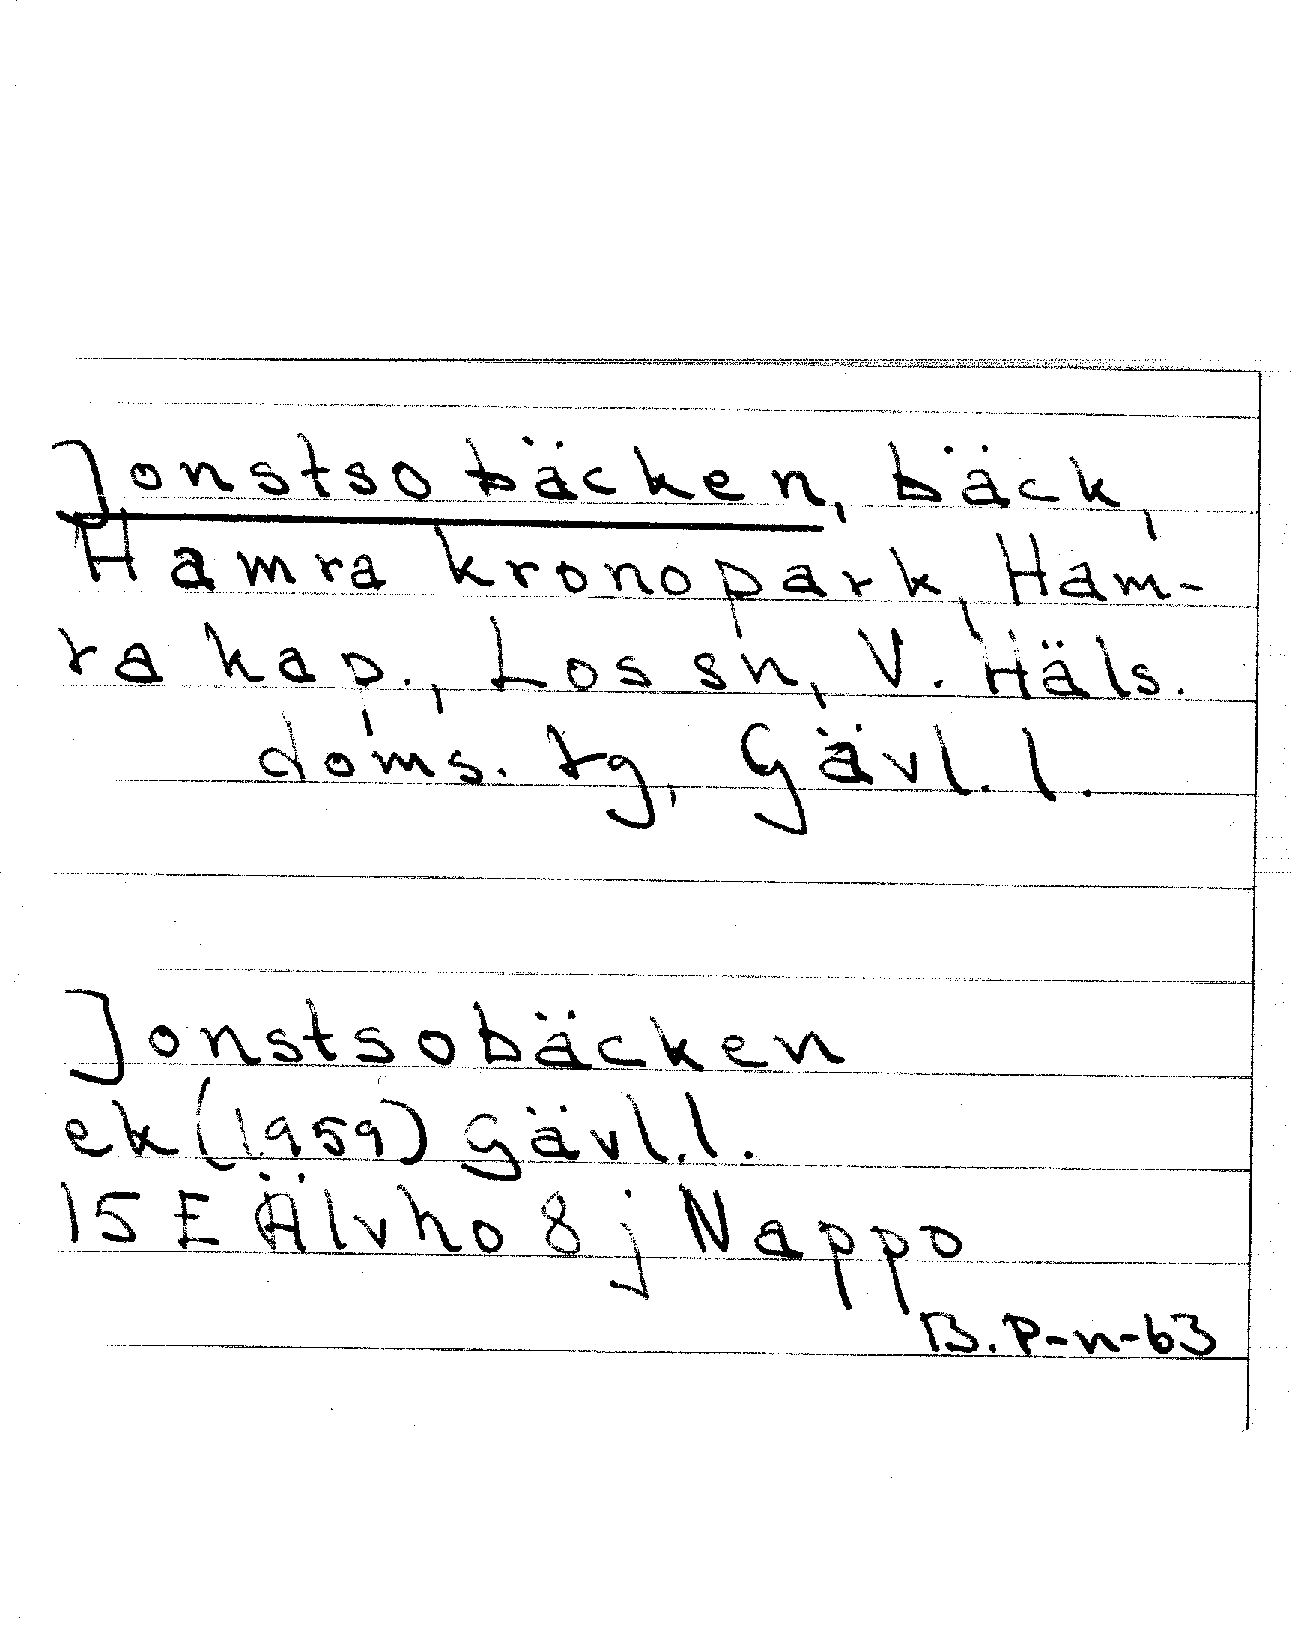 Jonstsobäcken, bäck,
Hamra kronopark, Ham-
ra kap., Los sn, V. Häls.
doms. tg, Gävl. l.
Jonstsobäcken
ek (1959) Gävl.l.
15 E Älvho 8 j Nappo
B. P-n-63